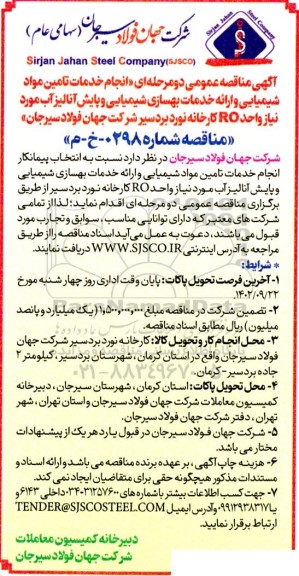 شرکت جهان فولاد سیرجان (سهامی عام)
Sirjan Jahan Steel Company(SJSCO)
آگهی مناقصه عمومی دو مرحله‌ای «انجام خدمات تامین مواد
شیمیایی و ارائه خدمات بهسازی شیمیایی و پایش آنالیز آب مورد
نیاز واحد RO کارخانه نورد بردسیر شرکت جهان فولاد سیرجان»
«مناقصه شماره ۰۲۹۸-خ-م»
شرکت جهان فولاد سیرجان در نظر دارد نسبت به انتخاب پیمانکار
انجام خدمات تامین مواد شیمیایی و ارائه خدمات بهسازی شیمیایی
و پایش آنالیز آب مورد نیاز واحد RO کارخانه نورد بردسیر از طریق
برگزاری مناقصه عمومی دو مرحله‌ای اقدام نماید: لذا از تمامی
شرکت های معتبر که دارای توانایی مناسب، سوابق و تجارب مورد
قبول می باشند، دعوت به عمل می‌آید اسناد مناقصه را از طریق
مراجعه به آدرس اینترنتی WWW.SJSCO.IR دریافت نمایند.
* شرایط:
۱- آخرین فرصت تحویل پاکات: پایان وقت اداری روز چهار شنبه مورخ
۱۴۰۲/۰۹/۲۲.
۲- تضمین شرکت در مناقصه مبلغ ۱,۵۰۰,۰۰۰,۰۰۰ (یک میلیارد و پانصد
میلیون) ریال مطابق اسناد مناقصه.
۳- محل انجام کار و تحویل کالا: کارخانه نورد بردسیر شرکت جهان
فولاد سیرجان واقع در استان کرمان، شهرستان بردسیر، کیلومتر ۲
جاده بردسیر - کرمان.
۴- محل تحویل پاکات: استان کرمان، شهرستان سیرجان، دبیرخانه
کمیسیون معاملات شرکت جهان فولاد سیرجان و استان تهران، شهر
تهران، دفتر شرکت جهان فولاد سیرجان.
۵- شرکت جهان فولاد سیرجان در قبول یا رد هر یک از پیشنهادات
مختار می باشد.
۶- هزینه چاپ آگهی، بر عهده برنده مناقصه می باشد و ارائه اسناد و
مستندات مذکور هیچگونه حقی برای متقاضیان ایجاد نمی کند.
۷- جهت کسب اطلاعات بیشتر با شماره های ۰۳۴-۳۱۲۵۷۶۰۰ داخلی ۶۱۴۳ و
یا ۰۹۹۱۲۹۳۸۳۱۷ و آدرس ایمیل TENDER@SJSCOSTEEL.COM
ارتباط برقرار نمایید.
دبیرخانه کمیسیون معاملات
شرکت جهان فولاد سیرجان